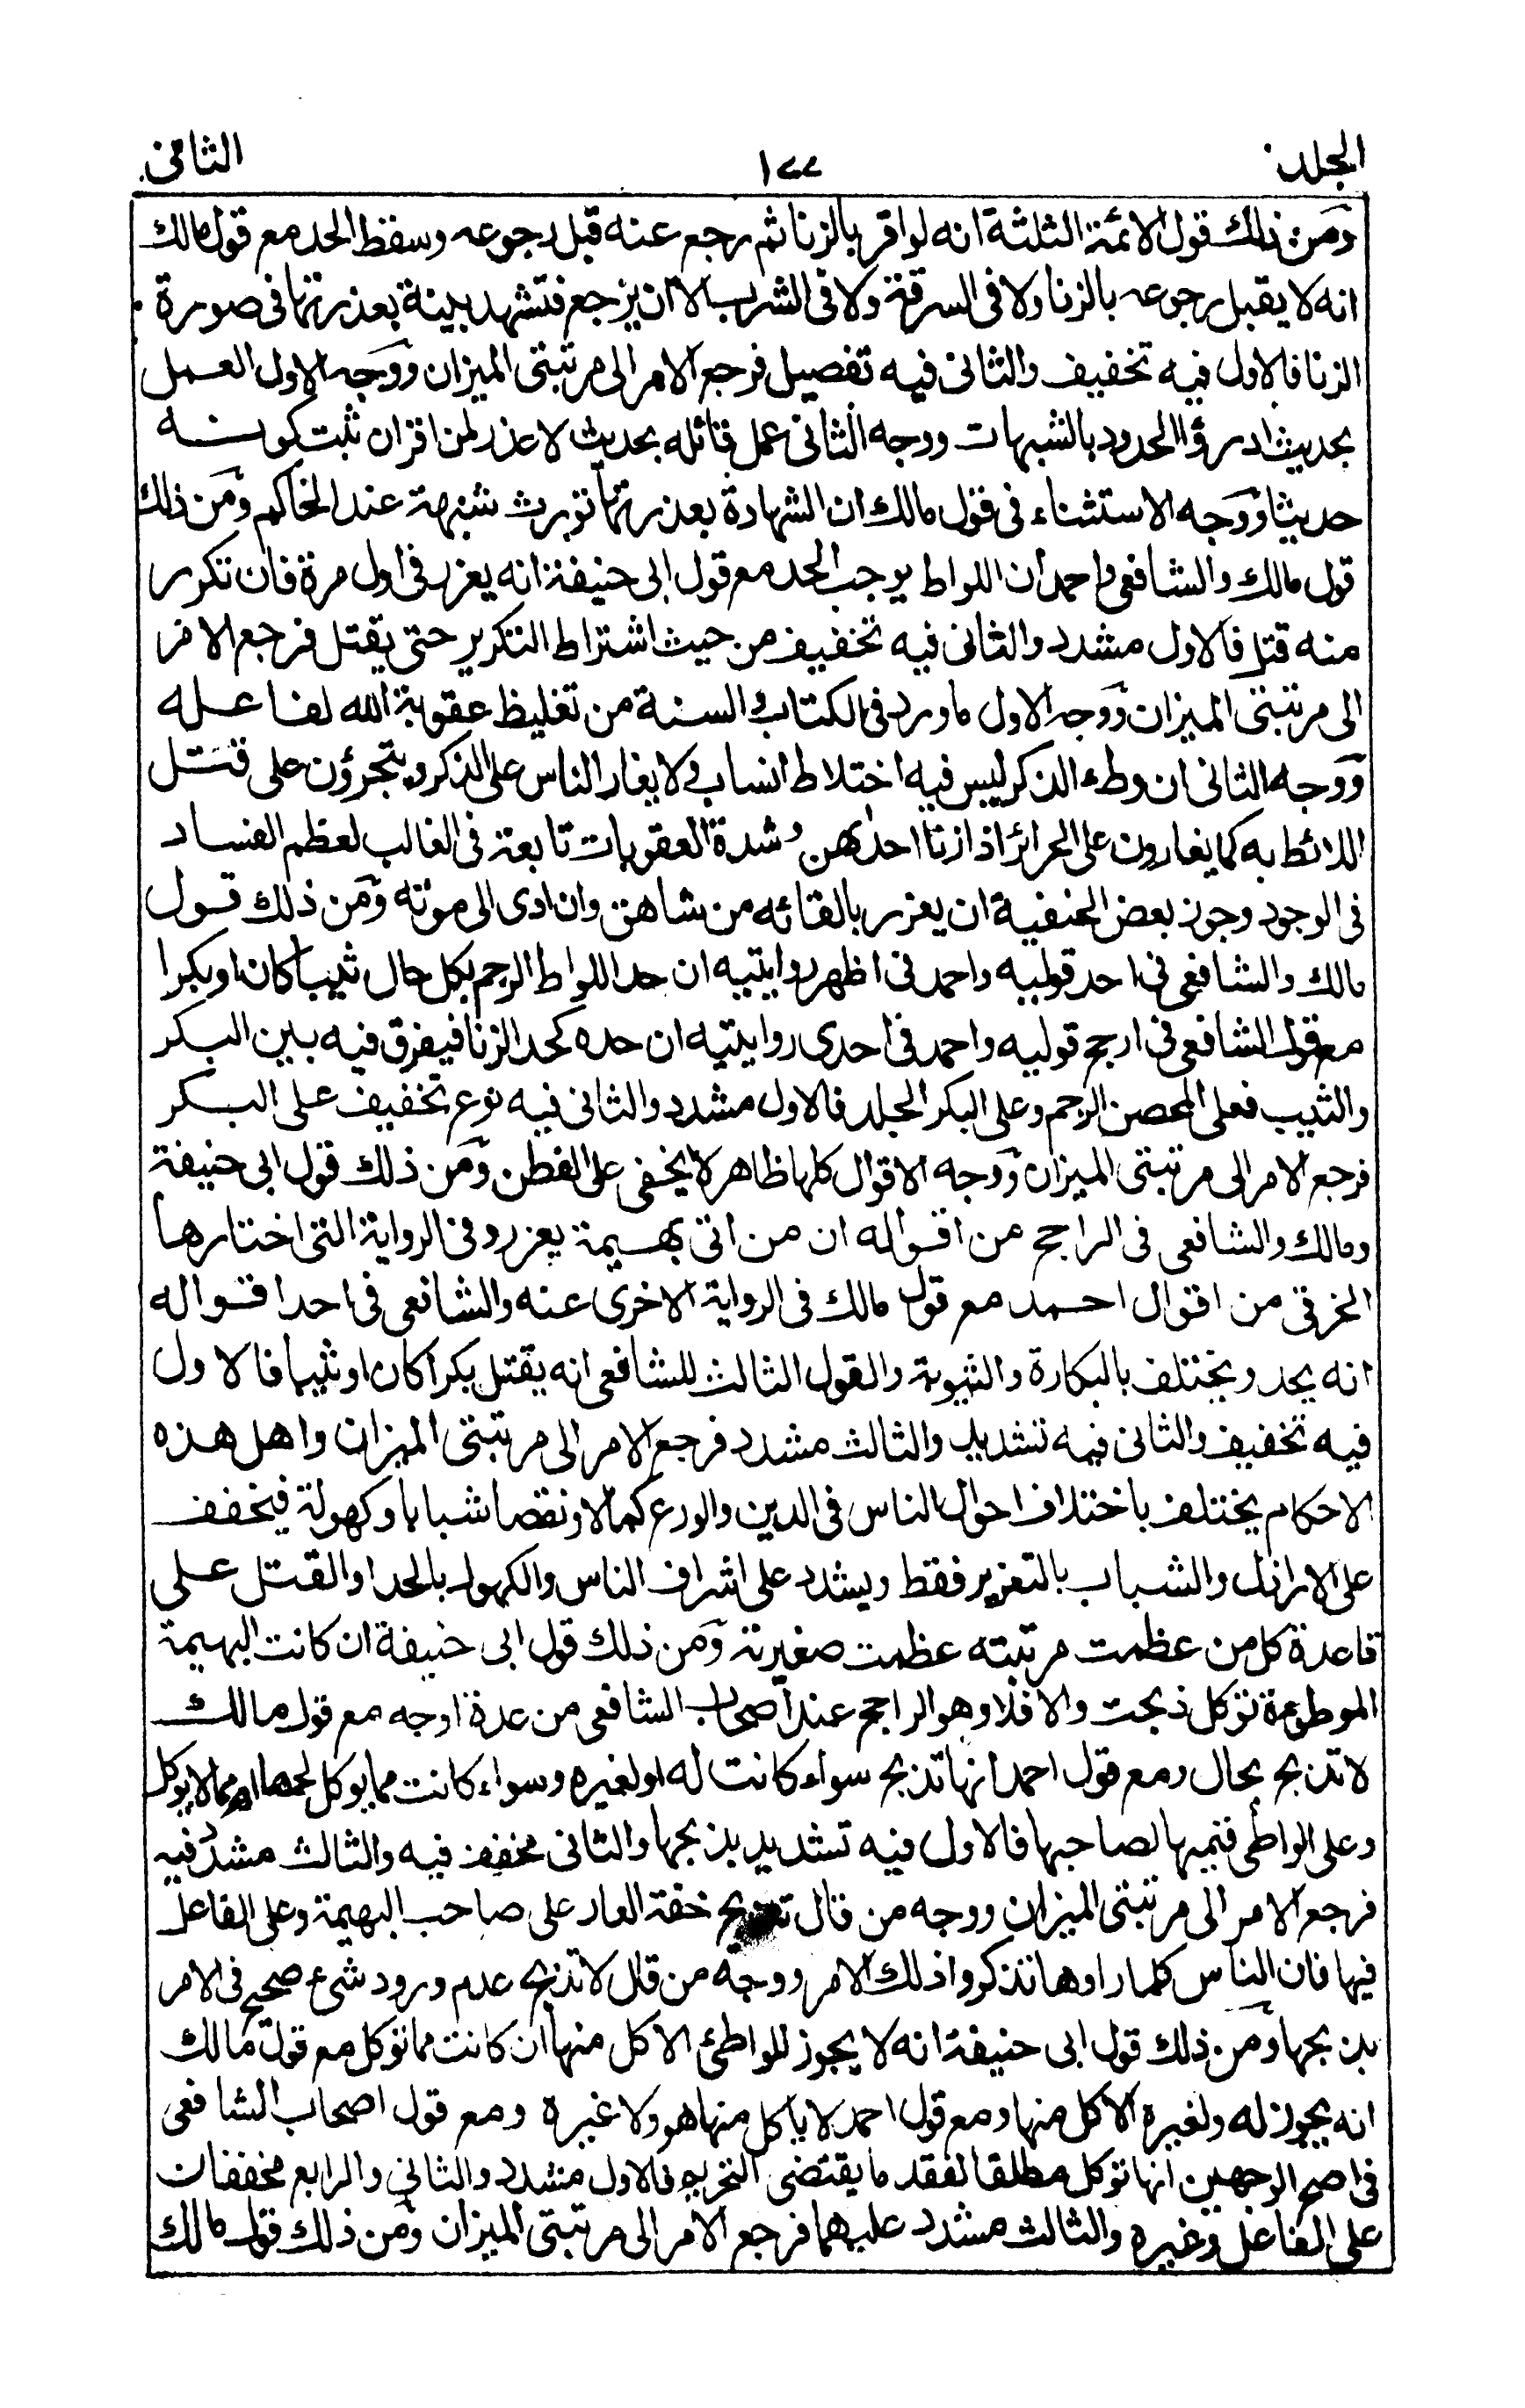 الجلد ١٧٧ الثانى
ومن ذلك قول الائمة الثلثة انه لو اقر بالزنا ثم رجع عنه قبل رجوعه وسقط الحد مع قول مالك
انه لا يقبل رجوعه بالزنا ولا فى السرقة ولا فى الشرب الا ان يرجع فتشهد بينة بعذرتها فى صورة
الزنا فالاول فيه تخفيف والثانى فيه تفصيل فرجع الامر الى مرتبتى الميزان ووجه الاول العمل
بحديث ادرؤا الحدود بالشبهات ووجه الثانى عمل قائله بحديث لا عذر لمن اقر ان ثبت كونه
حديثا ووجه الاستثناء فى قول مالك ان الشهادة بعذرتها تورث شبهة عند الحاكم ومن ذلك
قول مالك والشافعى واحمد ان اللواط يوجب الحد مع قول ابى حنيفة انه يعزر فى اول مرة فان تكرر
منه قتل فالاول مشدد والثانى فيه تخفيف من حيث اشتراط التكرير حتى يقتل فرجع الامر
الى مرتبتى الميزان ووجه الاول ما ورد فى الكتاب والسنة من تغليظ عقوبة الله لفاعله
ووجه الثانى ان وطء الذكر ليس فيه اختلاط انساب ولا يغار الناس على الذكر ويتجرؤن على قتل
اللائط به كما يغارون على الحرائر اذا زنا احدٰهن وشدة العقوبات تابعة فى الغالب لعظم الفساد
فى الوجود وجوز بعض الحنفية ان يعزر بالقائه من شاهق وان ادى الى موته ومن ذلك قول
مالك والشافعى فى احد قوليه واحمد فى اظهر روايتيه ان حد اللواط الرجم بكل حال ثيبا كان او بكرا
مع قول الشافعى فى ارجح قوليه واحمد فى احدى روايتيه ان حده كحد الزنا فيفرق فيه بين البكر
والثيب فعلى المحصن الرجم وعلى البكر الجلد فالاول مشدد والثانى فيه نوع تخفيف على البكر
فرجع الامر الى مرتبتى الميزان ووجه الاقوال كلها ظاهر لا يخفى على الفطن ومن ذلك قول ابى حنيفة
ومالك والشافعى فى الراجح من اقواله ان من اتى بهيمة يعزر وفى الرواية التى اختارها
الخرقى من اقوال احمد مع قول مالك فى الرواية الاخرى عنه والشافعى فى احد اقواله
انه يحد ويختلف بالبكارة والثيوبة والقول الثالث للشافعى انه يقتل بكرا كان او ثيبا فالاول
فيه تخفيف والثانى فيه تشديد والثالث مشدد فرجع الامر الى مرتبتى الميزان واهل هذه
الاحكام يختلف باختلاف احوال الناس فى الدين والورع كمالا ونقصا شبابا وكهولة فيخفف
على الاراذل والشباب بالتعزير فقط ويشدد على اشراف الناس والكهول بالحد او القتل على
قاعدة كل من عظمت مرتبته عظمت صغيرته ومن ذلك قول ابى حنيفة ان كانت البهيمة
الموطوءة تؤكل ذبحت والا فلا وهو الراجح عند اصحاب الشافعى من عدة اوجه مع قول مالك
لا تذبح بحال ومع قول احمد انها تذبح سواء كانت له او لغيره وسواء كانت مما يوكل لحمها او مما لا يوكل
وعلى الواطى قيمتها لصاحبها فالاول فيه تشديد بذبحها والثانى مخفف فيه والثالث مشدد فيه
فرجع الامر الى مرتبتى الميزان ووجه من قال تذبح خفة العار على صاحب البهيمة وعلى الفاعل
فيها فان الناس كلما راوها تذكروا ذلك الامر ووجه من قال لا تذبح عدم ورود شىء صحيح فى الامر
بذبحها ومن ذلك قول ابى حنيفة انه لا يجوز للواطئ الاكل منها ان كانت مما توكل مع قول مالك
انه يجوز له ولغيره الاكل منها ومع قول احمد لا ياكل منها هو ولا غيره ومع قول اصحاب الشافعى
فى اصح الوجهين انها توكل مطلقا لفقد ما يقتضى التحريم فالاول مشدد والثانى والرابع مخففان
على الفاعل وغيره والثالث مشدد عليهما فرجع الامر الى مرتبتى الميزان ومن ذلك قول مالك